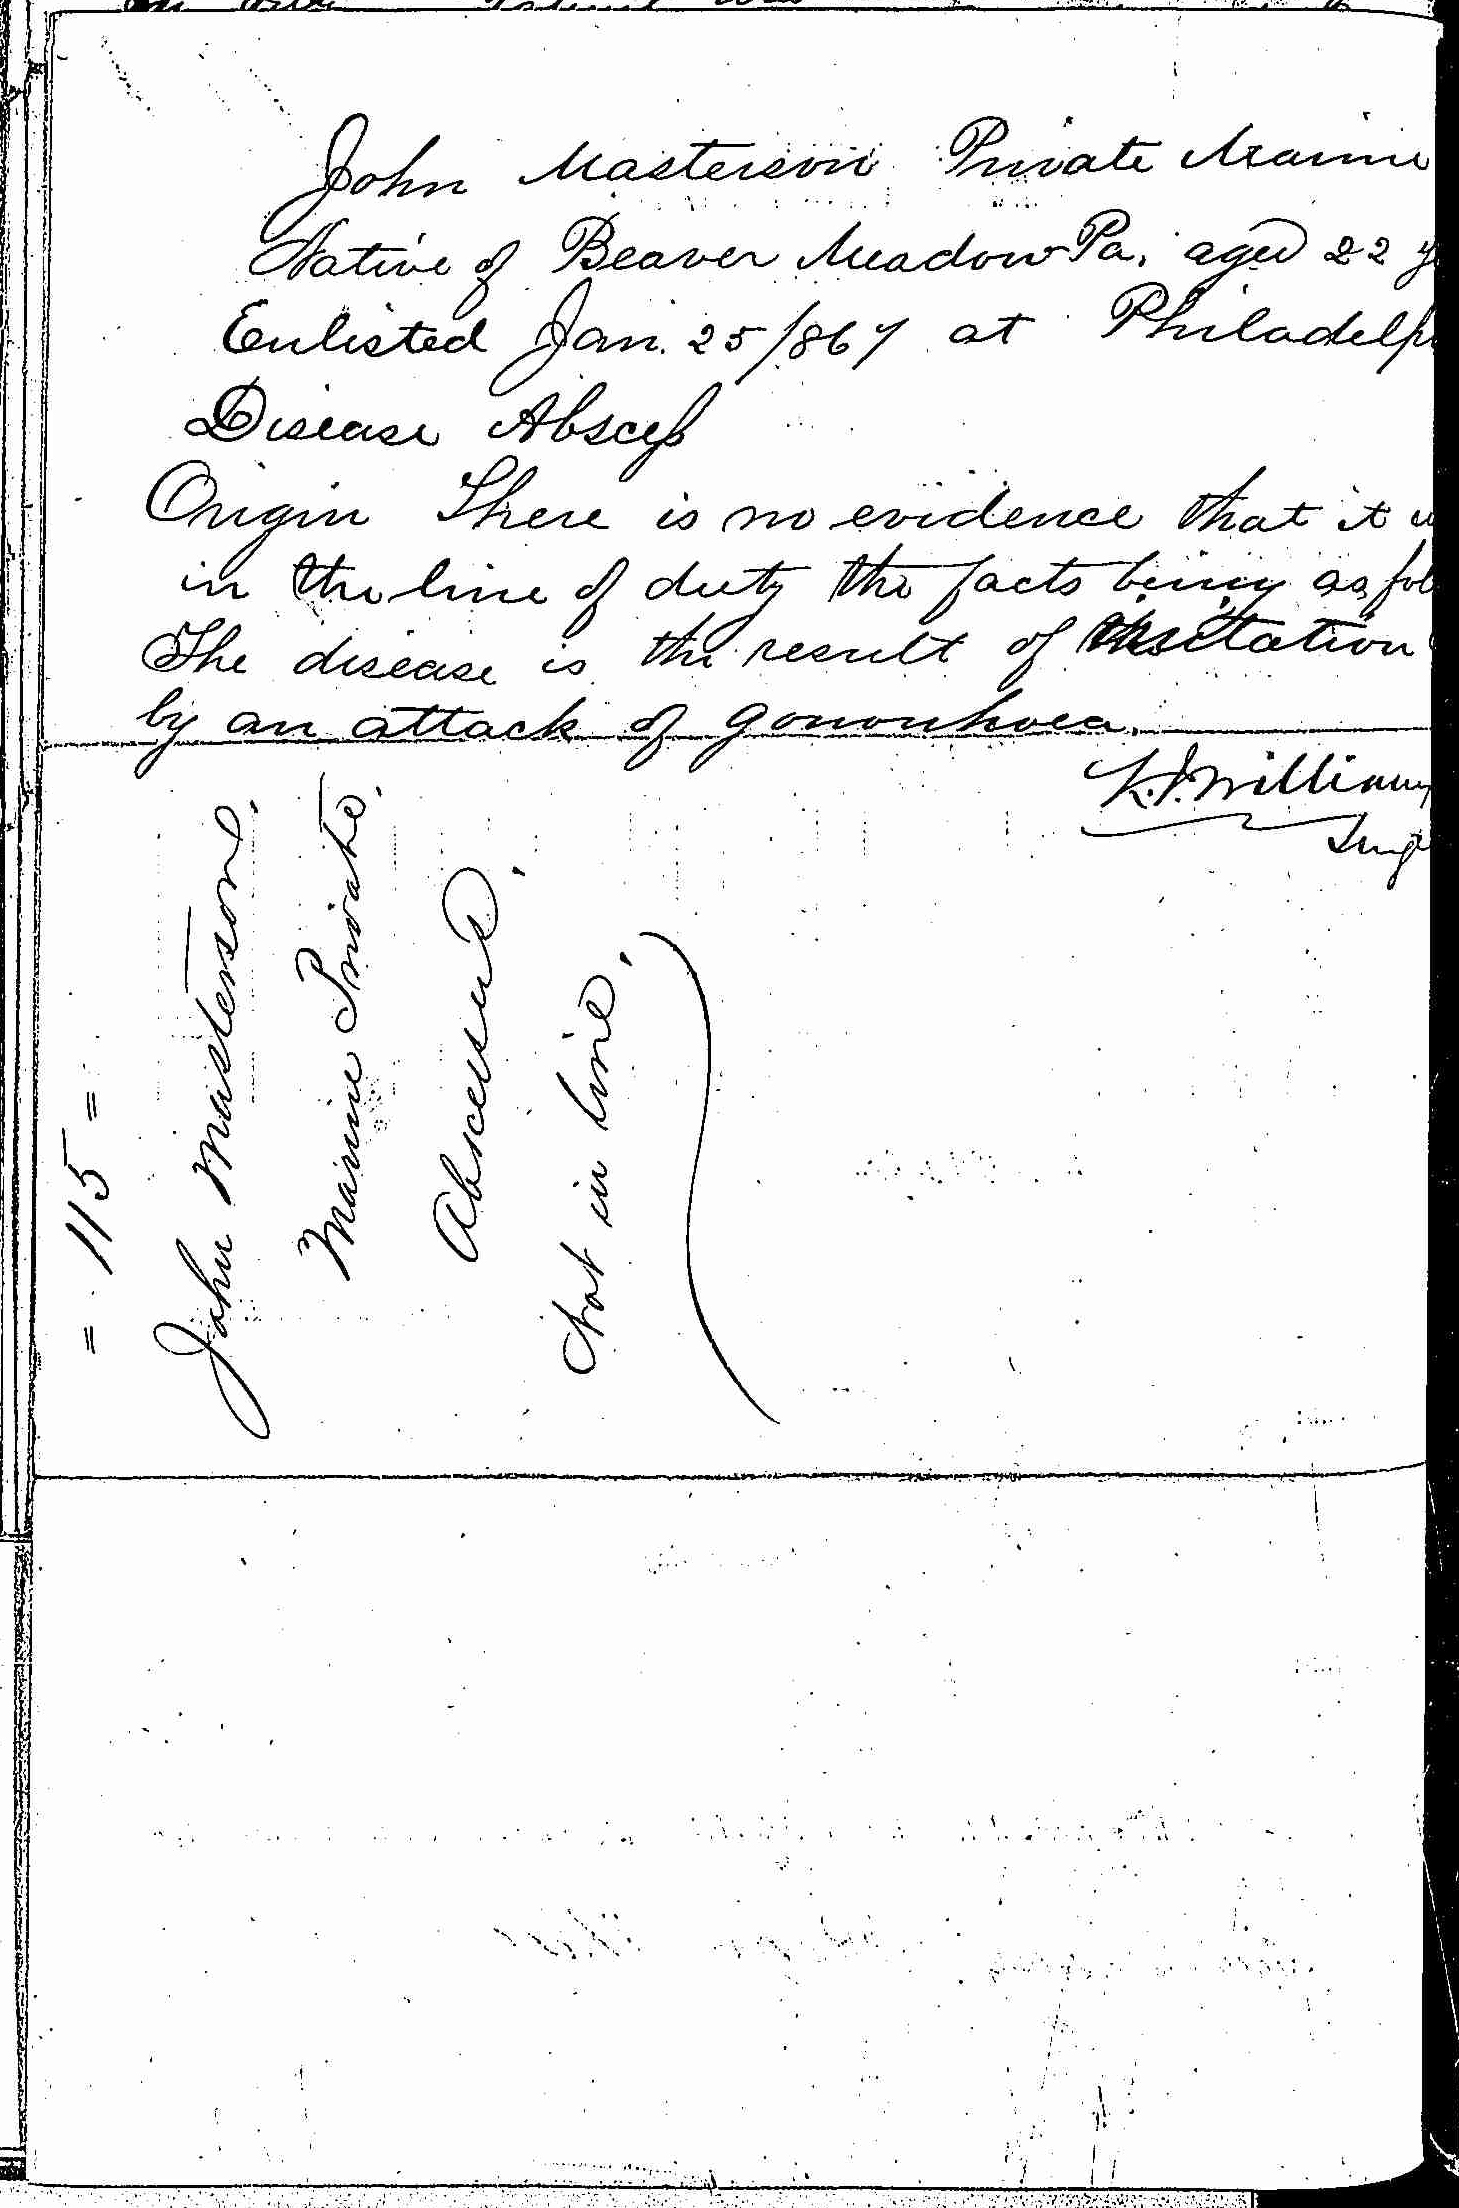 John Masterson Private Marine
Native of Beaver Meadow Pa. aged 22 y
Enlisted Jan. 25/867 at Philadelph
Disease Abscess
Origin There is no evidence that it w
in the line of duty the facts being as fol
The disease is the result of
by an attack of gonorrhoea.
Williams
Surg
= 115 =
John Masterson,
Marine Private,
Abscessus,
Not in line,